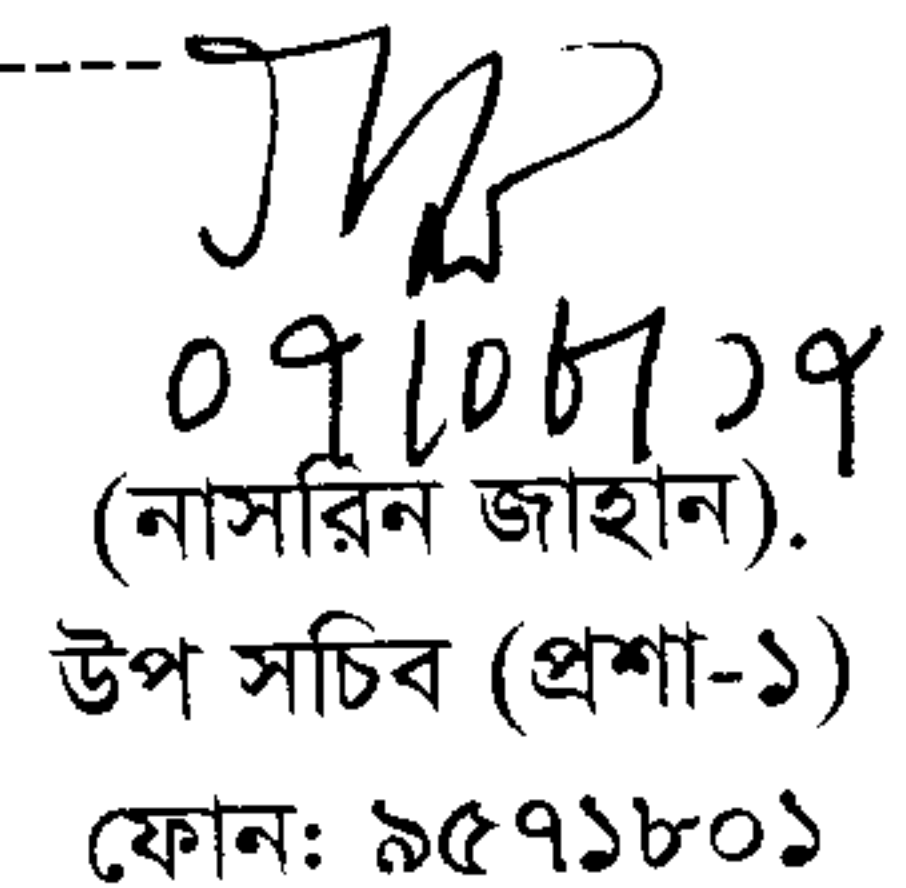 ০৭/০৮/১৭
(নাসরিন জাহান).
উপ সচিব (প্রশা-১)
ফোন: ৯৫৭১৮০১